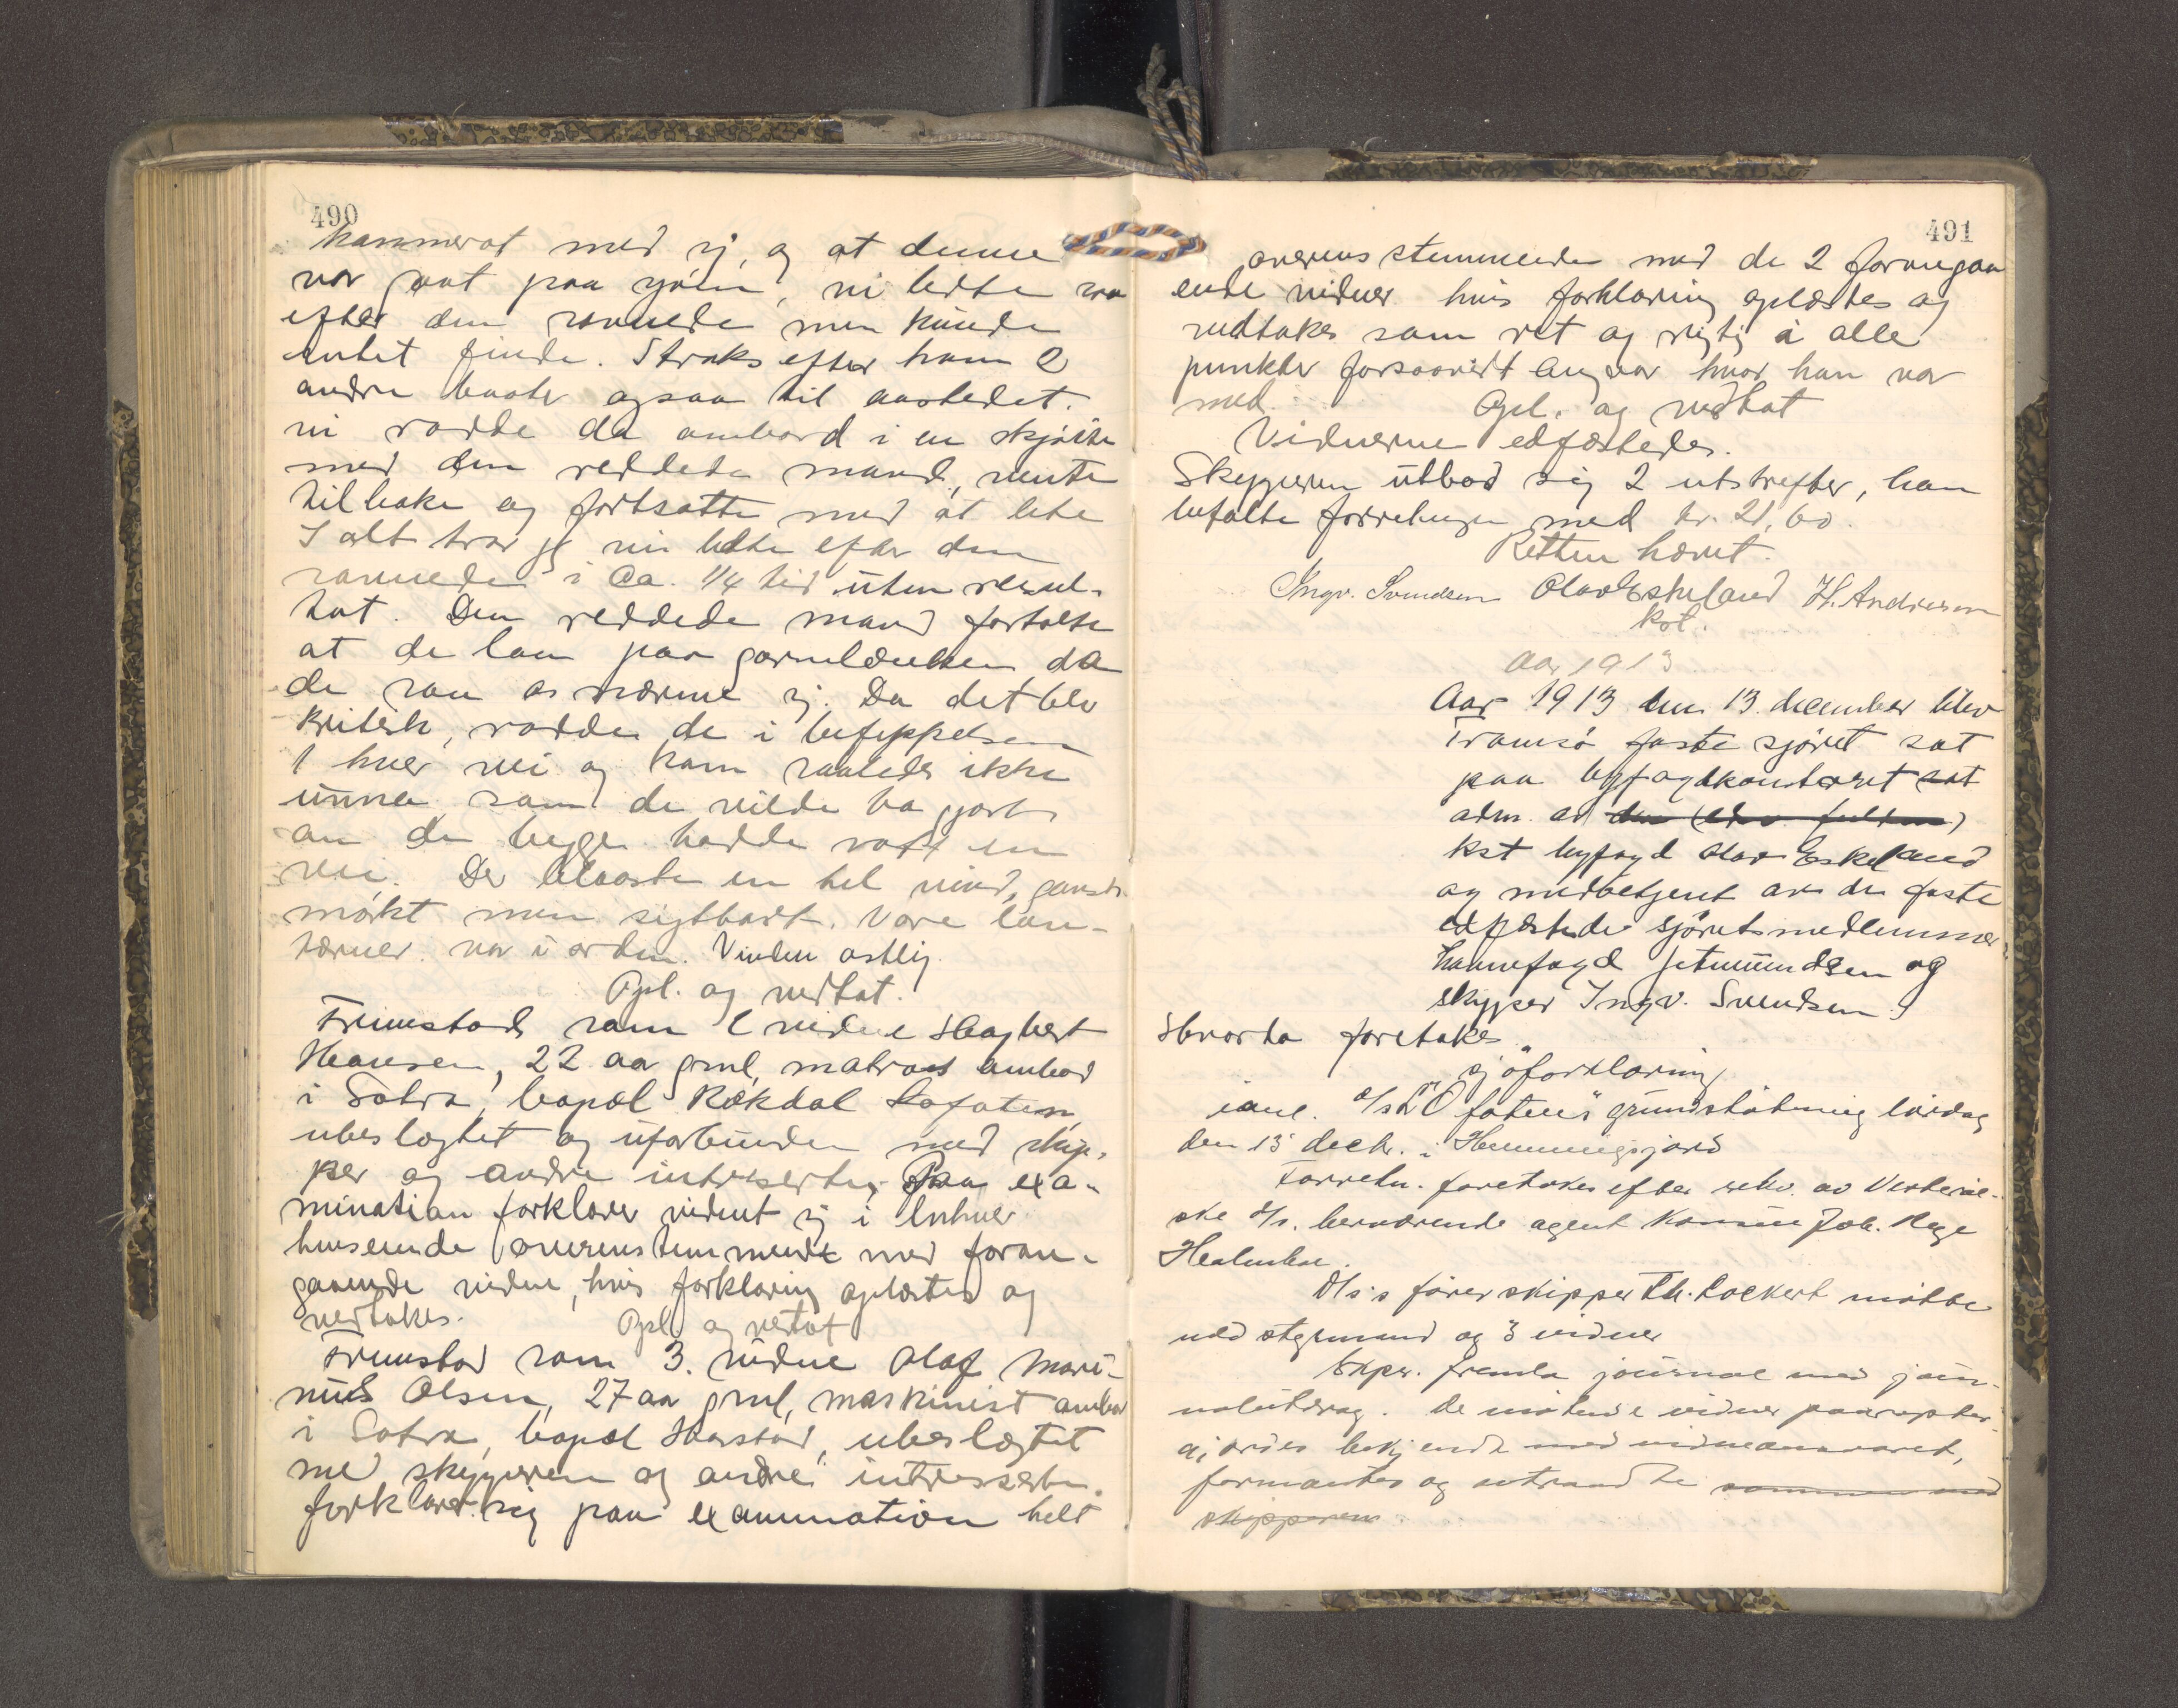 490
kammerat med sj, og at denne
var gaat paa sjöen, vi ledte saa
efter den savnede men kunde
intet finde. Straks efter kom 2
andre baater ogsaa til aastedet.
vi rodde da ombord i en skjöite
med den reddede mand, vente
tilbake og fortsatte med at lete
I alt tror jeg vi ledte efter den
savnede i Ca. 1/4 tid uten resul-
tat. Den reddede mand fortalte
at de laa paa garnlænken da
de saa os nærme sj. Da det blev
kritisk, rodde de i befippelsen
1 hver vei og kom saaledes ikke
unna som de vilde ha gjort
om de begge hadde rodd en
vei. Der blaaste en hel vind, ganske
mörkt men sigtbart. Vore lan-
tærner var i orden. Vinden ostlig.
Opl. og vedtat.
Fremstod som 2 vidne Hagbert
Hansen, 22 aa gml, matros ombord
i Sotra, bopæl Rekdal Lofoten,
ubeslegtet og uforbunden med skip-
per og andre intreserte. Paa exa-
mination forklarer vidnet sj i enhver
henseende overenstemmende med foran-
gaaende vidne, hvis forklaring oplæstes og
vedtokes. Opl. og vedtat
Fremstod som 3. vidne Olaf Mari-
nius Olsen, 27 aa gml, maskinist ombord
i Sotra, bopæl Harstad, ubeslegtet
med skipperen og andre intresserte.
forklarer sig paa examination helt
491
overensstemmende med de 2 foregaa
ende vidner hvis forklaring oplæstes og
vedtokes som ret og rigtig i alle
punkter forsaavidt angaar hvor han var
med. Opl. og vedtat
Vidnerne edfæstedes.
Skipperen utbad sig 2 utskrifter, han
betalte forretningen med kr. 21,60.
Retten hævet.
Ingv. Svendsen Olav Eskeland H. Andresen
kst.
Aar 1913
Aar 1913 den 13. december blev
Tromsö faste sjöret sat
paa byfogdkontoret sat
adm. av den (edv.
kst byfogd Olav Eskeland
og medbetjent av de faste
edfæstede sjöretsmedlemmer
havnefogd Jetmundsen og
skipper Ingv. Svendsen.
Hvorda foretokes
sjöforklaring
i anl. D/s "Lofotens" grundstötning lördag
den 13 decbr. i Hemmingsjord
Forretn. foretokes efter rekv. av Vesteraal-
ske D/s. herværende agent Konsul Joh. Hage
D/s's förer skipper Th. Lockert mötte
med styrmand og 3 vidner
Skpr. fremla journal med jour-
nalutdrag. De mötende vidner paaropter
gjordes bekjendt med vidneansvaret,
formantes og uttraadte sammen med
skipperen.